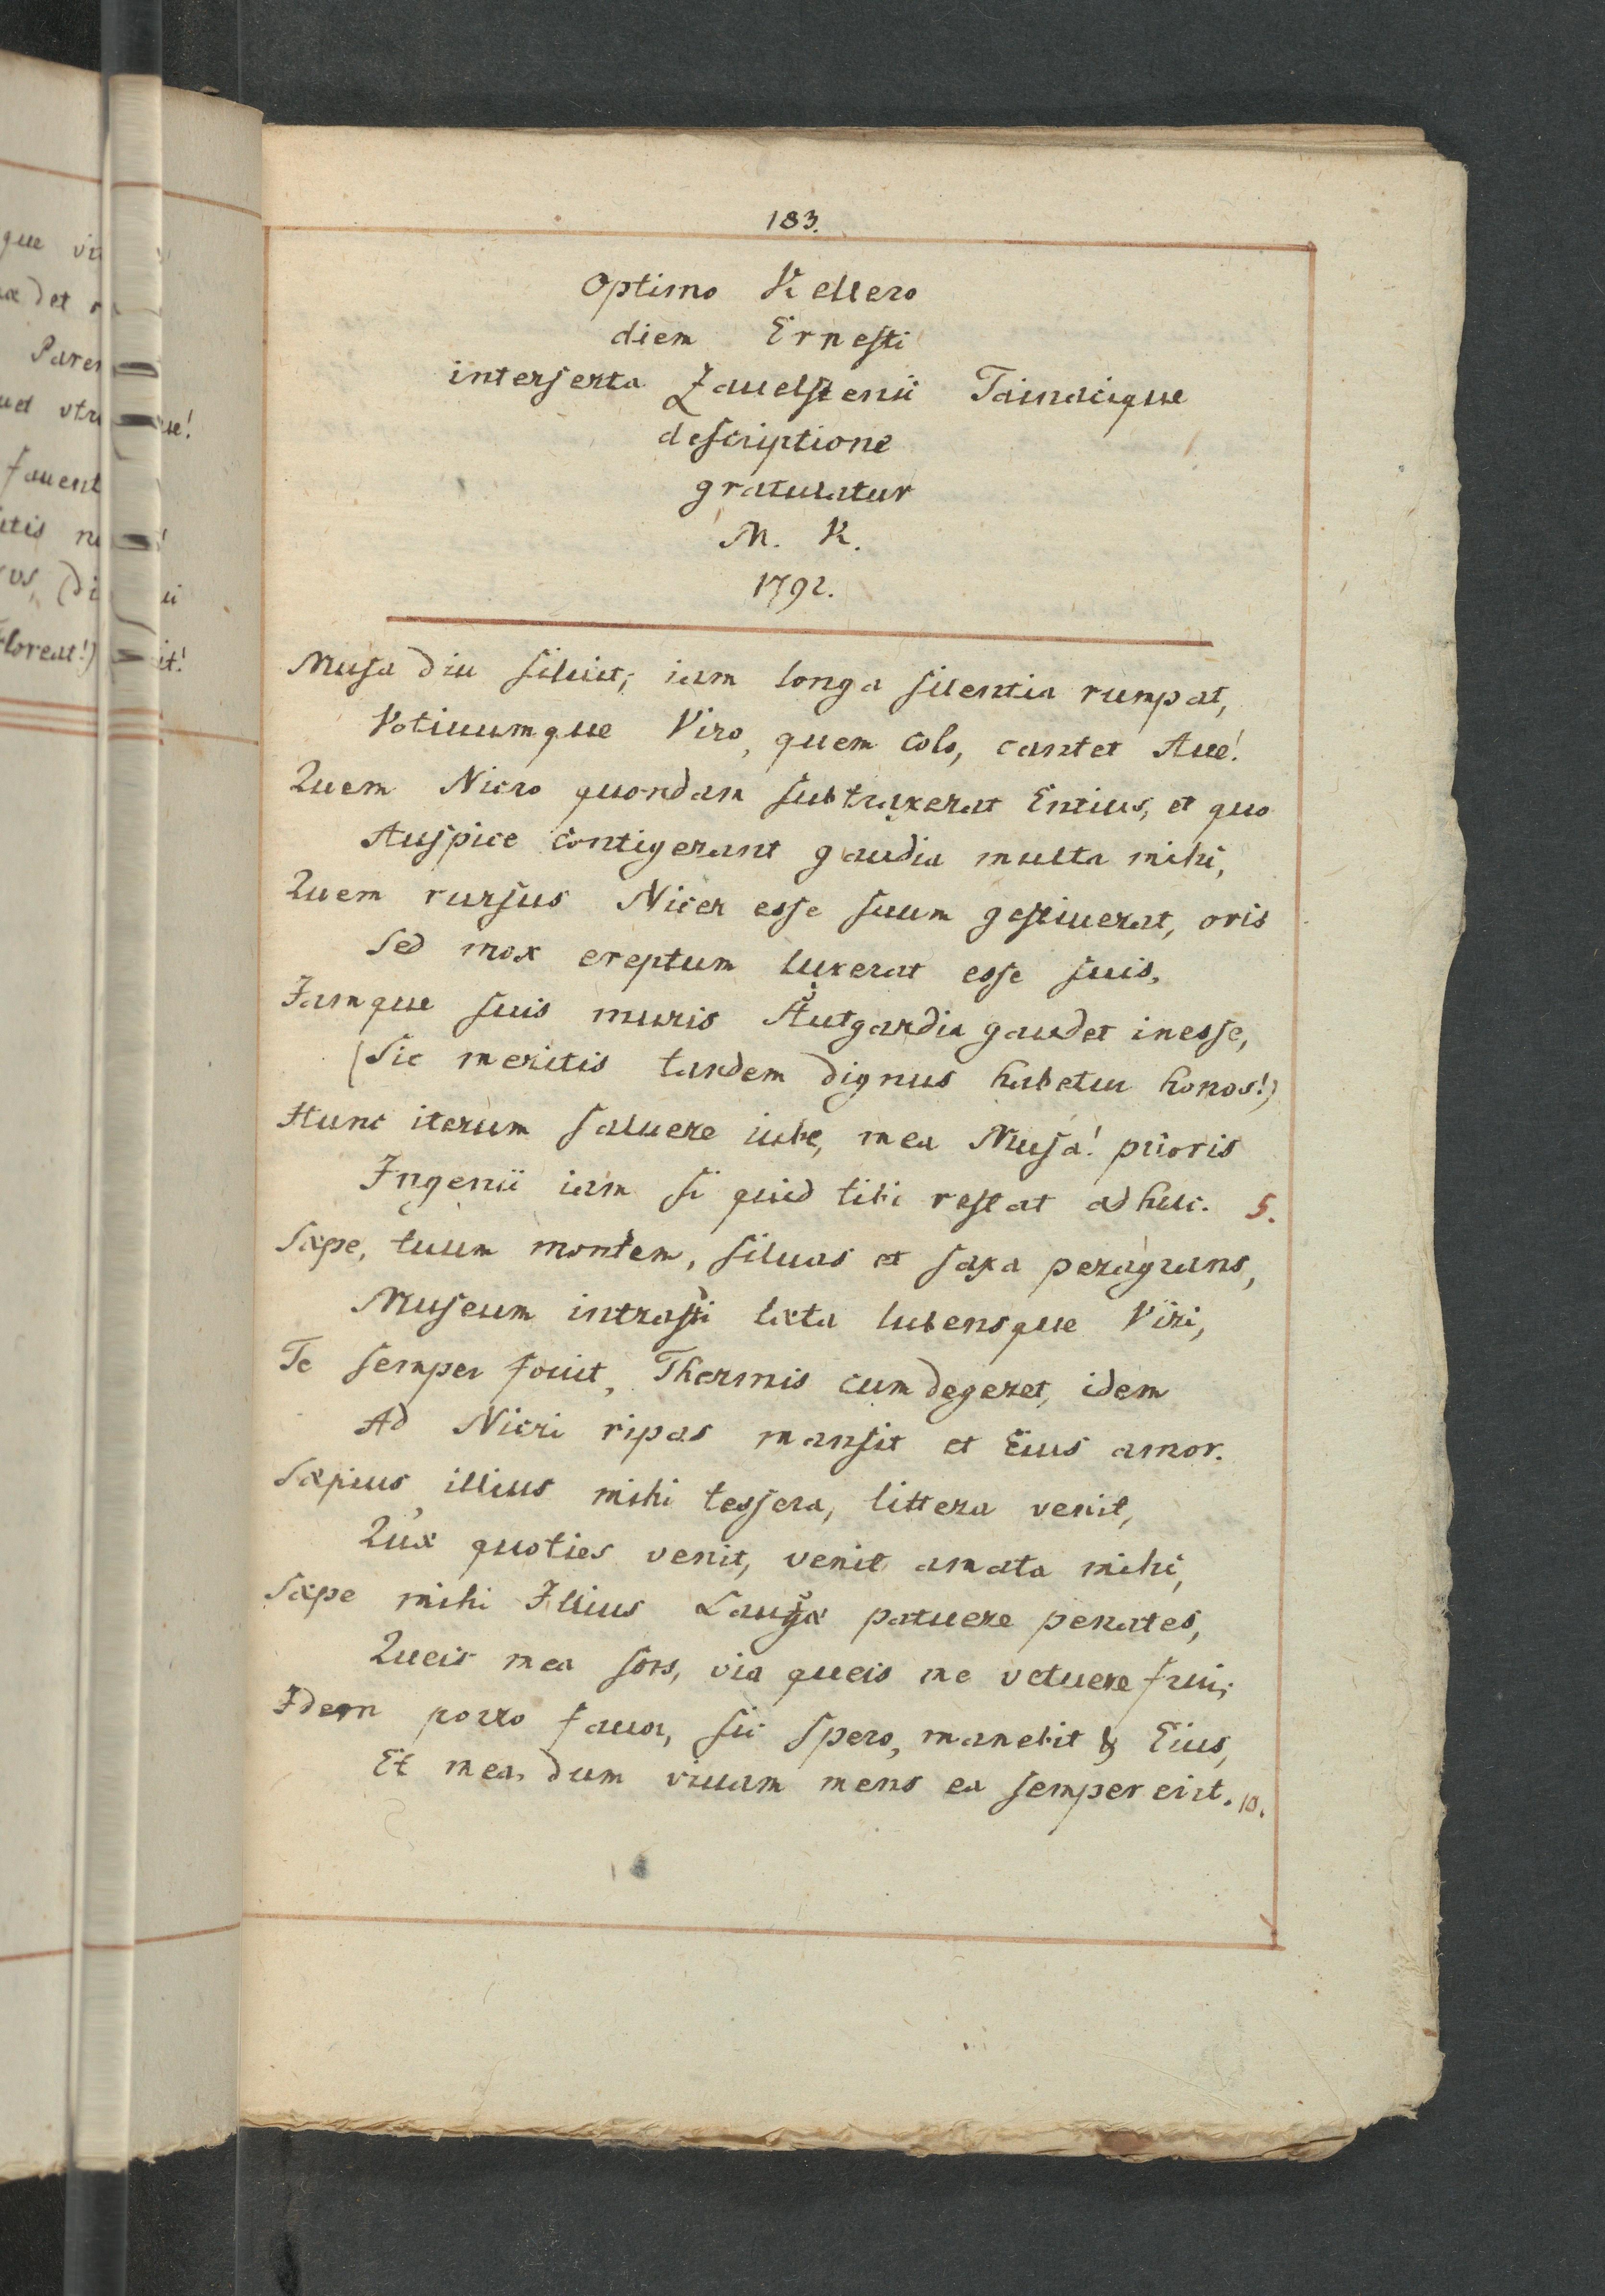 183.
Optimo Kellero
diem Ernesti
interserta Zauelstenii Tainacique
descriptione
gratulatur
M. K.
1792.
Musa diu siluit; iam longa silentia rumpat,
Votiuumque Viro, quem colo, cantet Aue!
Quem Nicro quondam subtraxerat Entius, et quo
Auspice contigerant gaudia multa mihi,
Quem rursus Nicer esse suum gestiuerat, oris
Sed mox ereptum luxerat esse suis,
Jamque suis muris Stutgardia gaudet inesse,
(Sic meritis tandem dignus habetur honos!)
Hunc iterum saluere iube, mea Musa! prioris
Ingenii iam si quid tibi restat adhuc. 5.
Sæpe, tuum montem, siluas et saxa peragrans,
Museum intrasti læta lubensque Viri,
Te semper fouit, Thermis cum degeret, idem
Ad Nicri ripas mansit et Eius amor.
Sæpius illius mihi tessera, littera venit,
Quæ quoties venit, venit amata mihi,
Sæpe mihi Illius patuere penates,
Queis mea sors, via queis me vetuere frui;
Idem porro fauor, sic spero, manebit & Eius,
Et mea, dum viuam mens ea semper erit. 10.
que
det
Paren
vtr ue!
fauent
itis
vs, (di
Floreat!) it!